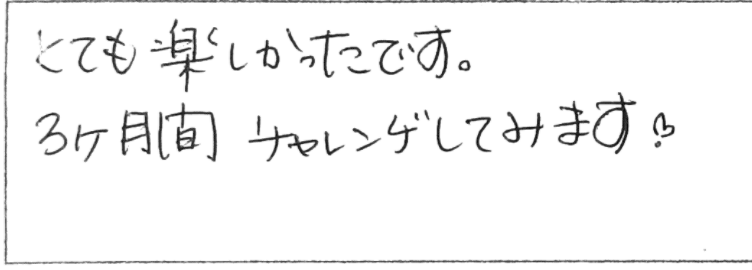 とても楽しかったです。
3ヶ月間 チャレンジしてみます♡